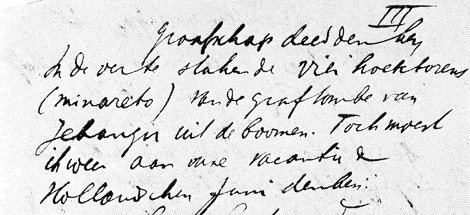 III
Graafschap deed denken
In de verte staken de vier hoektorens
(minarets) van de graftombe van
Jehangir uit de boomen. Toch moest
ik weer aan onze vacantie &
Hollandschen Juni denken: